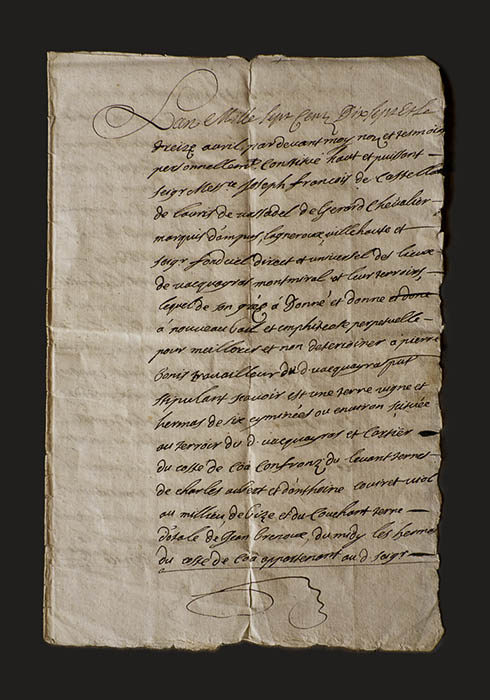 L'an Mille Sept Cens Dix sept et le
treize avril par devant moy no.re et tesmoins
personnellem.t Constitué haut et puissant
seigr Mess.re Joseph francois de Castellane
de lauris de vassadel de Gerard Chevalier
marquis d'ampus, lagneroux, villehaute et
seigr foncier direct et universel des lieux
de vacqueyras montmiral et leurs terroirs
lequel de son gré a Donné et donne et done
a nouveau bail et emphiteote perpetuelle
pour meillorer et non deteriorer a pierre
benis travailleur du d vacqueyras pnt
stipulant scavoir est une terre vigne et
hermas de six eyminées ou environ scituée
au terroir du d. vacqueyras et Cartier
du coste de Coa Confron.t du levant terres
de charles aubert et d'antheine couret viol
au millieu de bize et du Couchant terre
dotale de Jean du midy les hermas
du coste de Coa appartenant au d. seigr